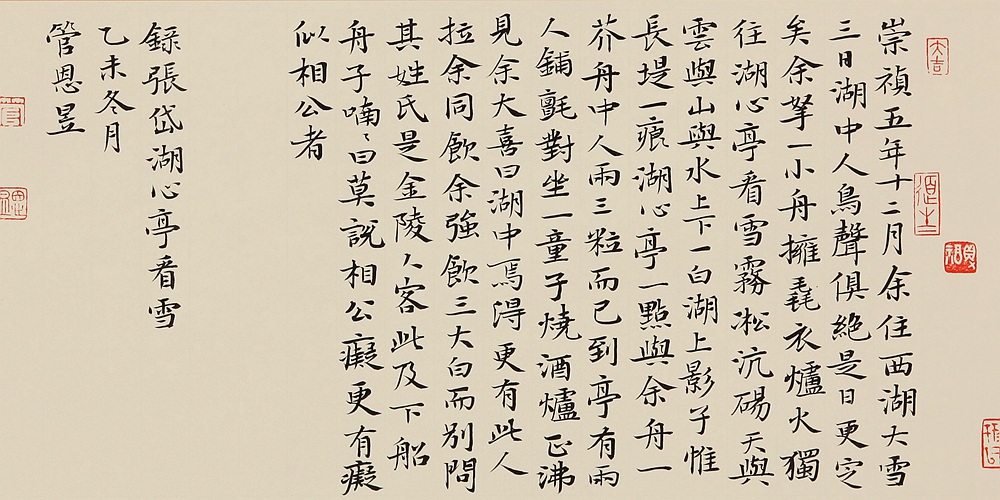 崇禎五年十二月余住西湖大雪
三日湖中人鳥聲俱絕是日更定
矣余拏一小舟擁毳衣爐火獨
往湖心亭看雪霧凇沆碭天與
雲與山與水上下一白湖上影子惟
長堤一痕湖心亭一點與余舟一
芥舟中人兩三粒而已到亭有兩
人鋪氈對坐一童子燒酒爐正沸
見余大喜曰湖中焉得更有此人
拉余同飲余強飲三大白而別問
其姓氏是金陵人客此及下船
舟子喃〻曰莫說相公癡更有癡
似相公者
錄張岱湖心亭看雪
乙未冬月
管恩昱
大吉